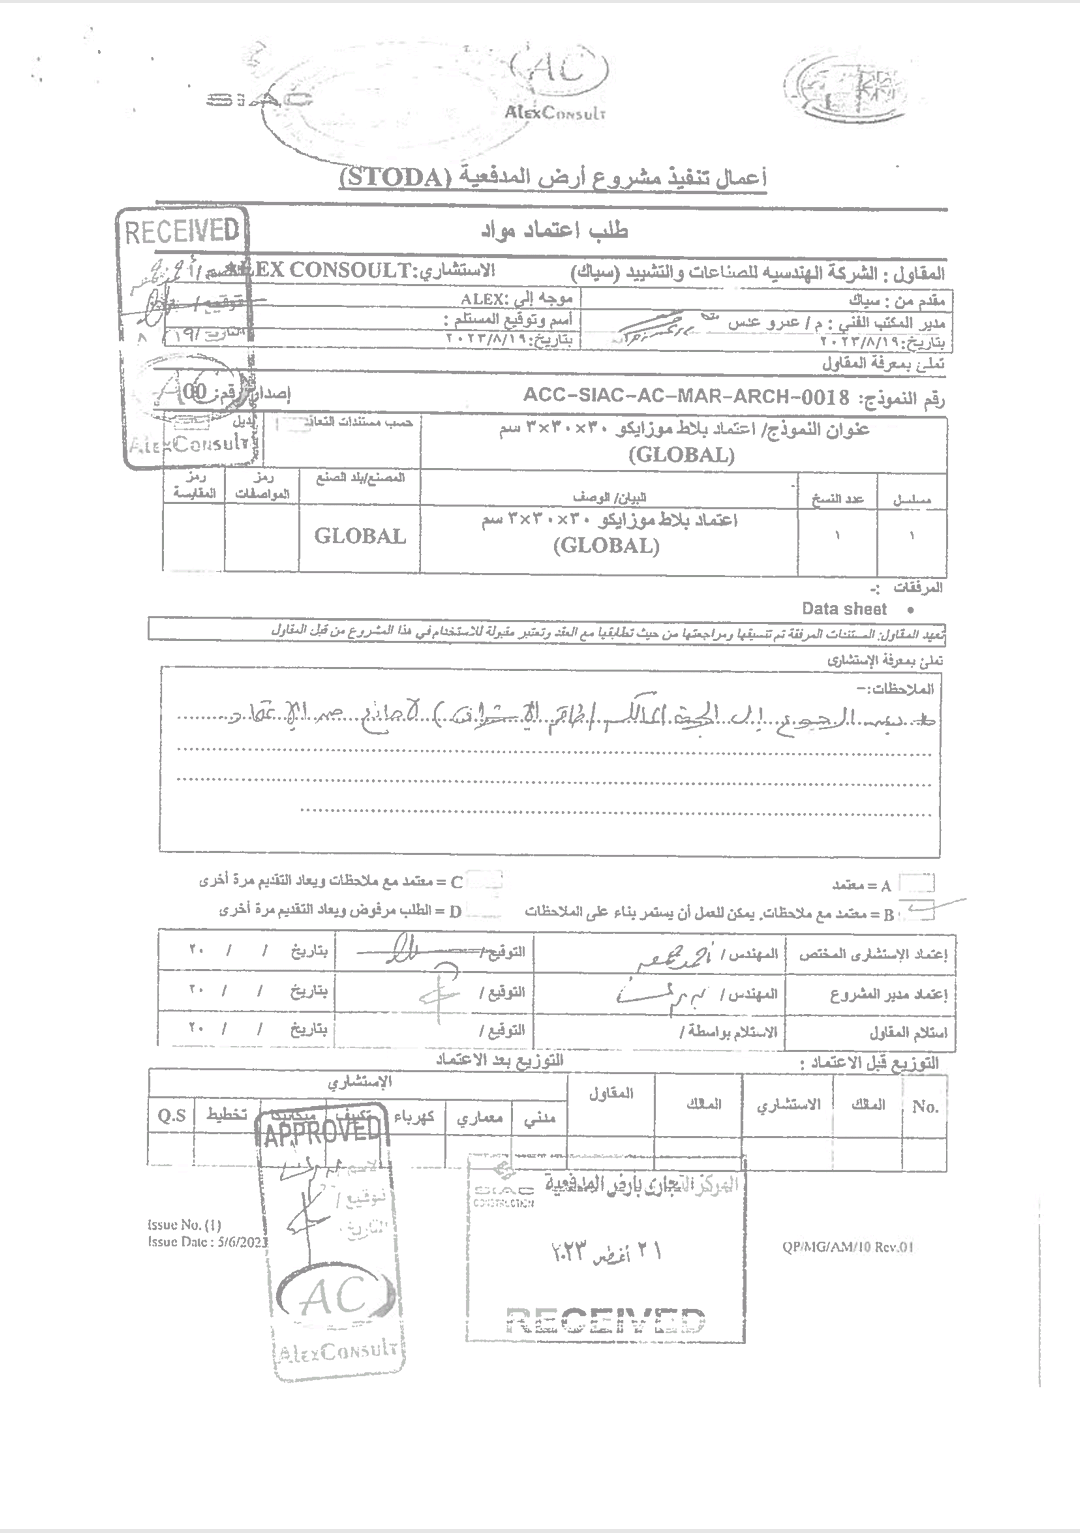 SIAC
AC
ALEXCONSULT
أعمال تنفيذ مشروع أرض المدفعية (STODA)
RECEIVED
طلب اعتماد مواد
المقاول : الشركة الهندسيه للصناعات والتشييد (سياك)
الاستشاري: ALEX CONSOULT
مقدم من : سياك
موجه إلي :ALEX
توقيع /
مدير المكتب الفني : م / عمرو عدس
أسم وتوقيع المستلم :
بتاريخ: ٢٠٢٣/٨/١٩
بتاريخ: ٢٠٢٣/٨/١٩
التاريخ / ١٩ / ٨
تملئ بمعرفة المقاول
رقم النموذج: ACC-SIAC-AC-MAR-ARCH-0018
إصدار رقم: 00
عنوان النموذج/ اعتماد بلاط موزايكو ٣٠×٣٠×٣ سم
(GLOBAL)
حسب مستندات التعاقد
بديل
ALEXCONSULT
مسلسل
عدد النسخ
البيان/ الوصف
المصنع/بلد الصنع
رمز المواصفات
رمز المقايسة
١
١
اعتماد بلاط موزايكو ٣٠×٣٠×٣ سم
(GLOBAL)
GLOBAL
المرفقات :-
• Data sheet
تعهد المقاول: المستندات المرفقة تم تنسيقها ومراجعتها من حيث تطابقها مع العقد وتعتبر مقبولة للاستخدام في هذا المشروع من قبل المقاول
تملئ بمعرفة الإستشارى
الملاحظات:-
الرجوع إلى الجهة المالكة (طاقم الإشراف) لا مانع من الإعتماد
A = معتمد
C = معتمد مع ملاحظات ويعاد التقديم مرة أخرى
B = معتمد مع ملاحظات. يمكن للعمل أن يستمر بناء على الملاحظات
D = الطلب مرفوض ويعاد التقديم مرة أخرى
إعتماد الإستشارى المختص
المهندس / أحمد جمعه
التوقيع /
بتاريخ / / ٢٠
إعتماد مدير المشروع
المهندس /
التوقيع /
بتاريخ / / ٢٠
استلام المقاول
الاستلام بواسطة /
التوقيع /
بتاريخ / / ٢٠
التوزيع قبل الاعتماد :
التوزيع بعد الاعتماد
No.
المالك
الاستشاري
المالك
المقاول
الإستشاري
مدني
معماري
كهرباء
تكييف
ميكانيكا
تخطيط
Q.S
APPROVED
الاسم /
توقيع /
التاريخ:
AC
ALEXCONSULT
SIAC
CONSTRUCTION
المركز التجارى بأرض المدفعية
٢١ أغسطس ٢٠٢٣
RECEIVED
Issue No. (1)
Issue Date : 5/6/2023
QP/MG/AM/10 Rev.01